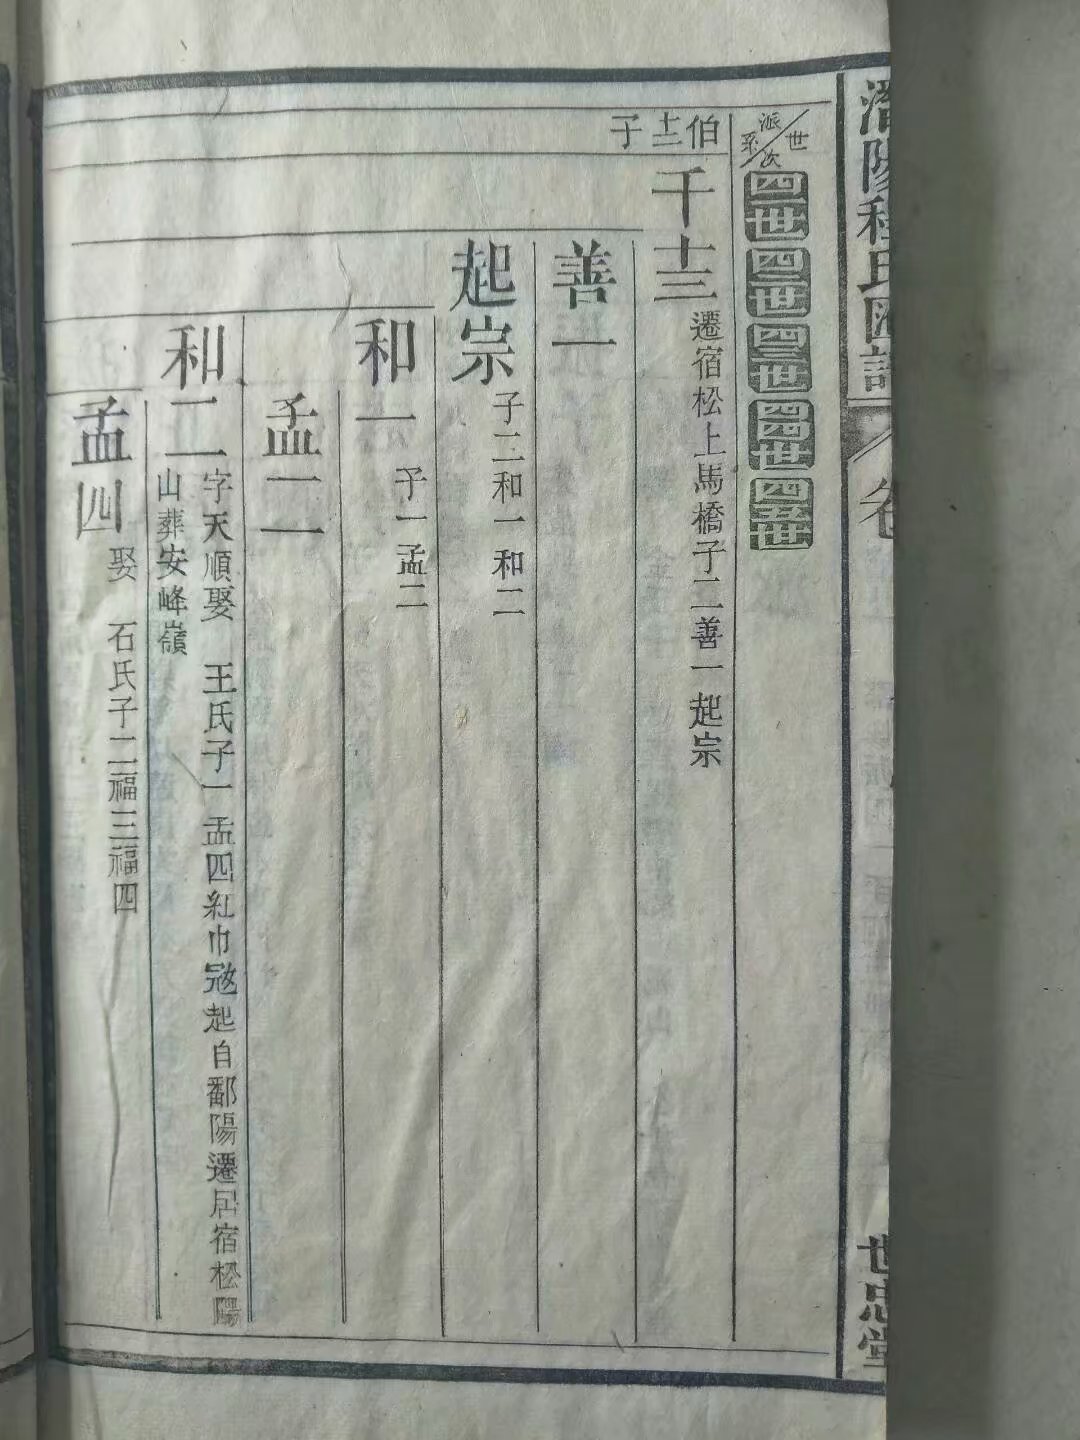 程氏
卷
世忠堂
世次
派系
四世
四二世
四三世
四四世
四五世
伯十二子
千十三
遷宿松上馬橋子二善一起宗
善一
起宗
子二和一和二
和一
子一孟二
孟二
和二
字天順娶 王氏子一孟四紅巾寇起自鄱陽遷居宿松陽
山葬安峰嶺
孟四
娶 石氏子二福三福四